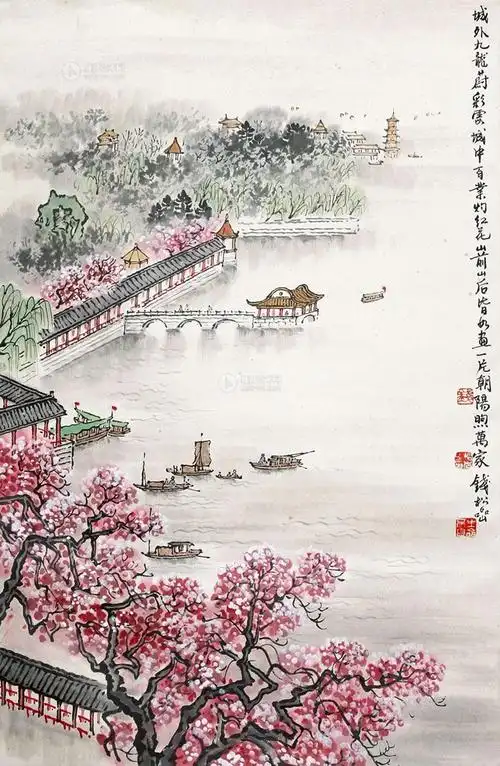 城外九龍蔚彩雲城中百業灼红花山前山后皆如畫一片朝陽煦萬家錢松喦